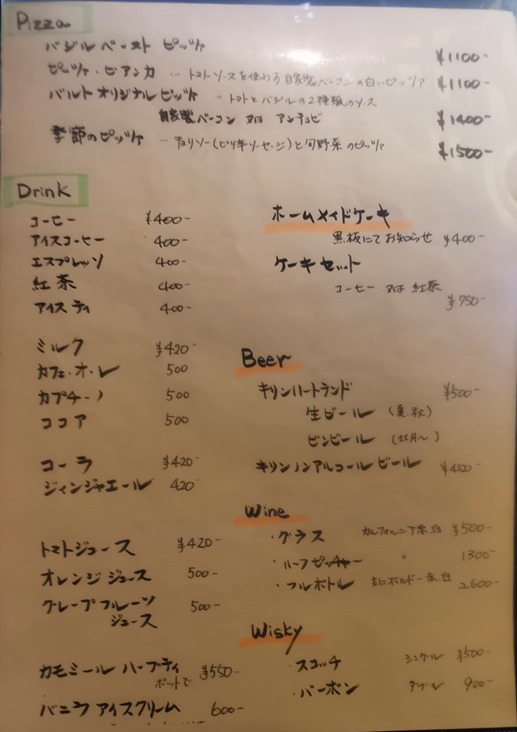 Pizza
バジルペースト ピッツァ ¥1100-
ピッツァ・ビアンカ … トマトソースを使わず 自家製ベーコンの白いピッツァ ¥1100-
バルト オリジナル ピッツァ - トマトとバジルの2種類のソース
自家製ベーコン 又は アンチョビ ¥1400-
季節のピッツァ - チョリソー(ピリ辛ソーセージ)と旬野菜のピッツァ ¥1500-
Drink
コーヒー ¥400-
アイスコーヒー 400-
エスプレッソ 400-
紅茶 400-
アイスティ 400-
ミルク ¥420-
カフェ・オ・レ 500
カプチーノ 500
ココア 500
コーラ ¥420-
ジィンジャエール 420-
トマトジュース ¥420-
オレンジ ジュース 500-
グレープフルーツ
ジュース 500-
カモミール ハーブティ ¥550-
ポットで
バニラ アイスクリーム 600-
ホームメイドケーキ
黒板にてお知らせ ¥400-
ケーキセット
コーヒー 又は 紅茶
¥750-
Beer
キリンハートランド ¥500-
生ビール (夏、秋)
ビンビール
キリンノンアルコール ビール ¥450-
Wine
・グラス カルフォルニア赤、白 ¥500-
・ハーフピッチャー 〃 1300-
・フルボトル ボルドー赤、白 2600-
Wisky
・スコッチ シングル ¥500-
・バーボン ダブル 900-